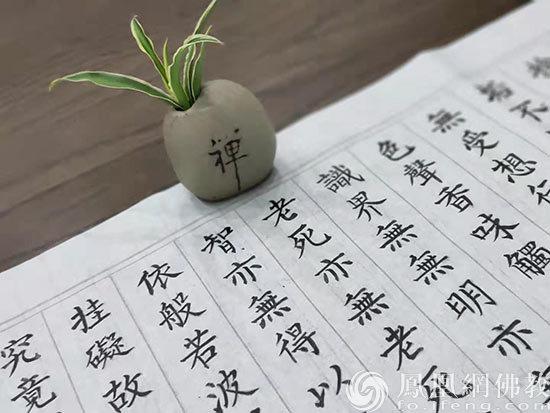 禪
不
無受想行
色聲香味觸
識界無無明亦
老死亦無老
智亦無得以
依般若波
挂礙故
究竟
鳳凰網佛教
fo.ifeng.com